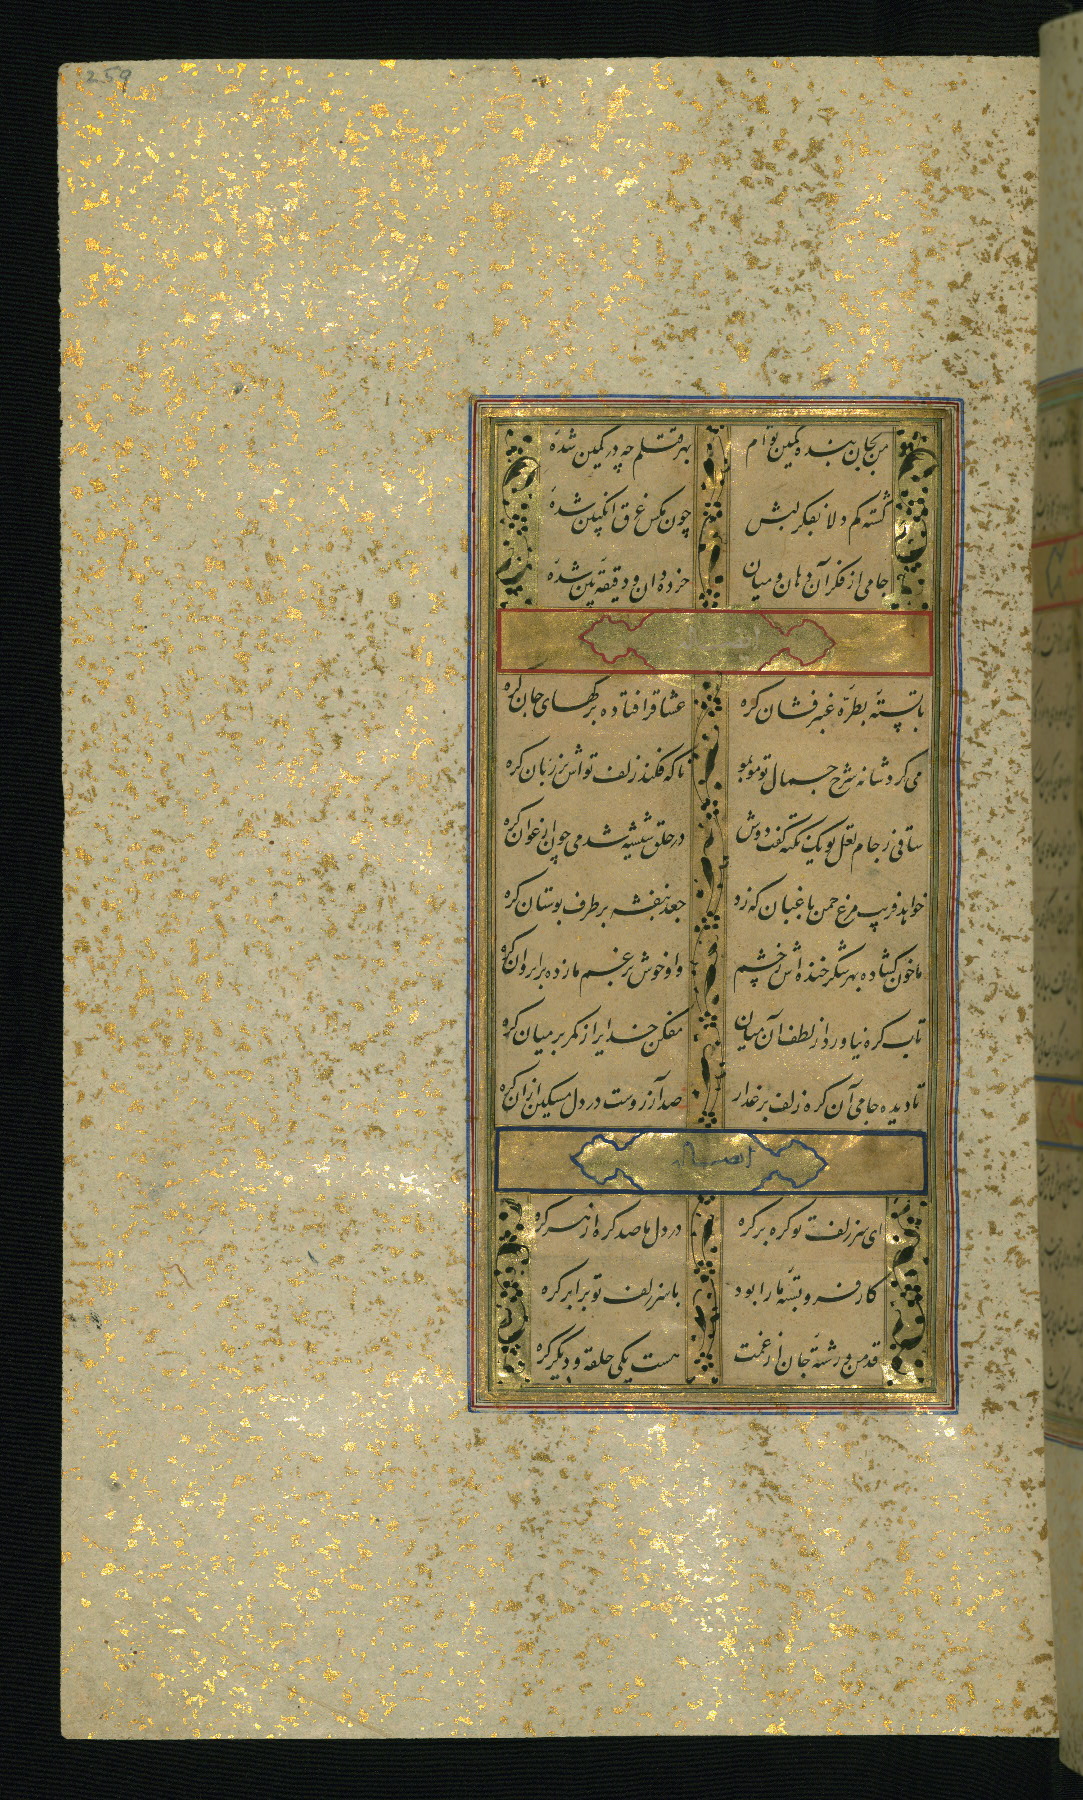 259
من بجان بنده کمین توام بهر قتلم چه در کمین شده
گشته گم دلا بفکر لبش چون مگس غرق انگبین شده
جامی از فکر آن دهان و میان خرده دان و دقیقه بین شده
تا بسته بطره عنبر فشان گره عشاق را فتاده برگهای جان گره
می کرد شانه شرح جمال تو مو بمو تا که فکند زلف تواش بر زبان گره
ساقی ز جام لعل تو یک نکته گفت دوش در حلق شیشه شد می چون ارغوان گره
خواهد فریب مرغ چمن باغبان که زد جعد بنفشه بر طرف بوستان گره
ما خون گشاده بهر شکرخنده اش ز چشم و او خوش بر غم ما زده بر ابروان گره
تاب گره نیاورد از لطف آن میان مفکن خدایرا ز کمر بر میان گره
تا دیده جامی آن گره زلف بر عذار صد آرزوست در دل مسکین ازان گره
ای سر زلفت تو گره بر گره در دل ما صد گره از هر گره
کار فرو بسته ما را بود با سر زلف تو برابر گره
قد من و رشته جان از غمت هست یکی حلقه و دیگر گره